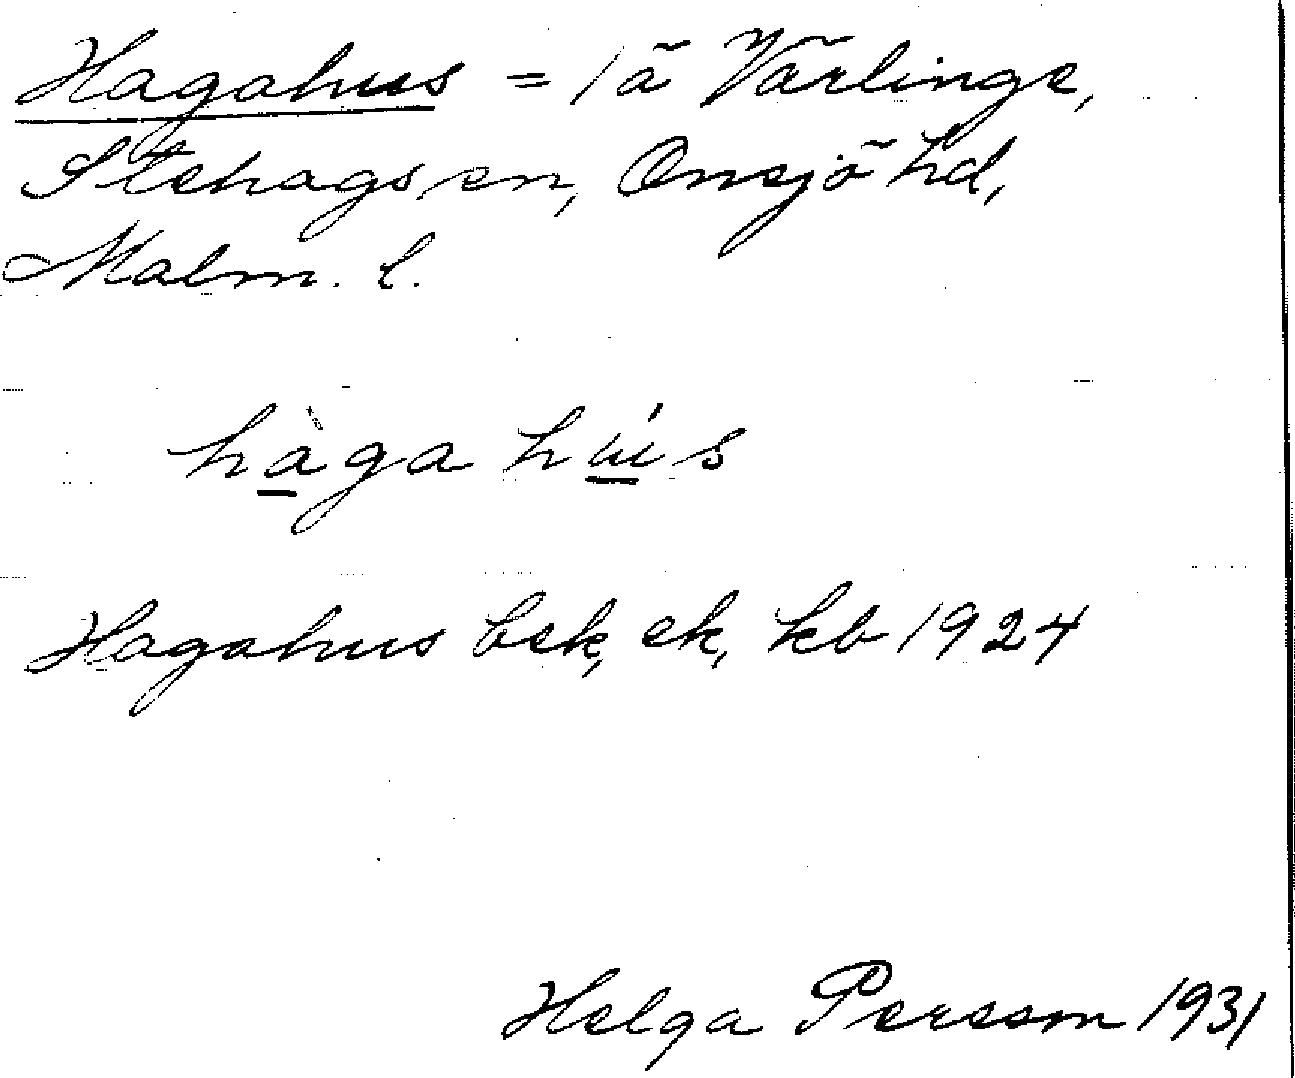 Hagahus = 1ä Värlinge,
Stehags sn, Onsjö hd,
Malm. l.
hàga hús
Hagahus bsk, ek, kb 1924
Helga Persson 1931